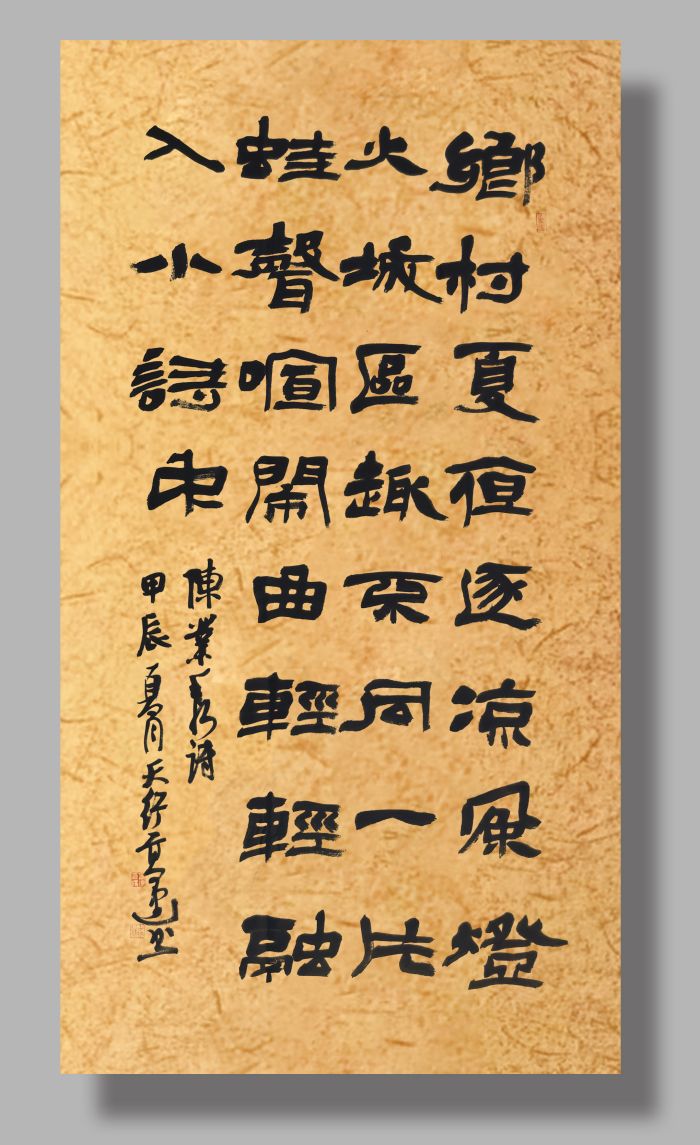 鄉村夏夜逐凉風燈
火城區趣不同一片
蛙聲喧鬧曲輕輕融
入小詩中
陳業秀詩
甲辰夏月天行 書